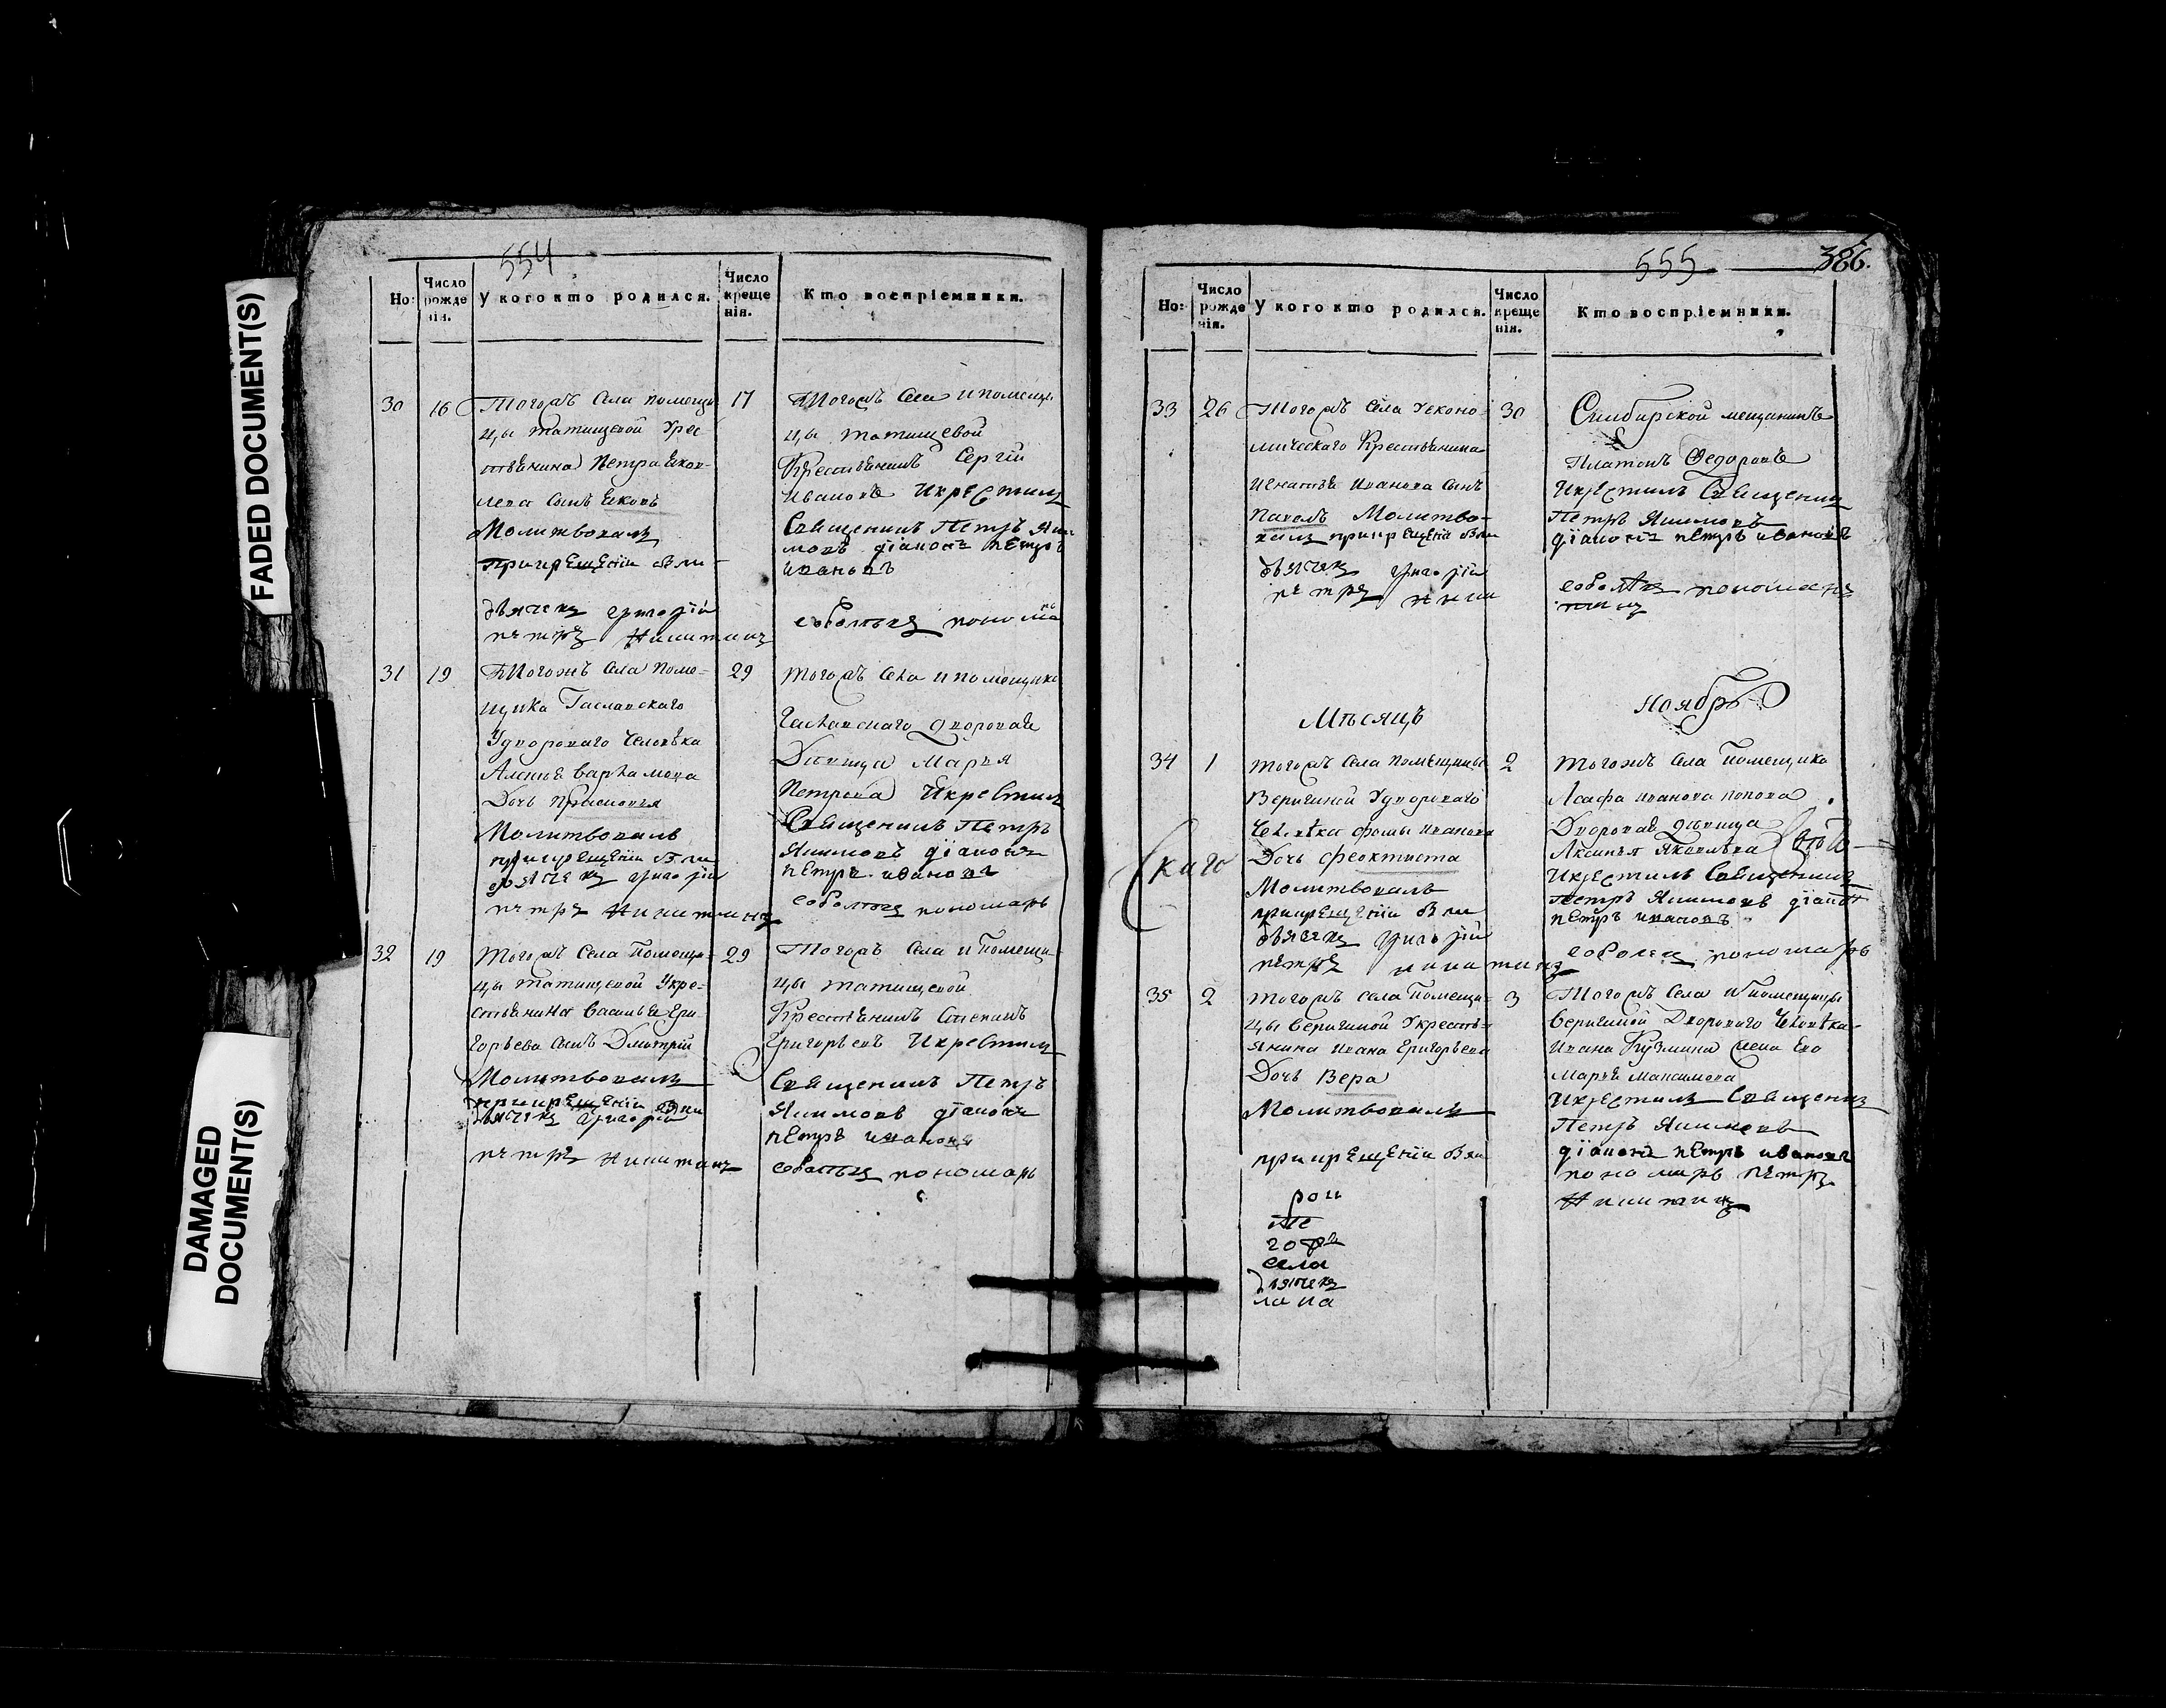 FADED DOCUMENT(S)
DAMAGED
DOCUMENT(S)
554
Но:
Число
рожде
нія.
У кого кто родился.
Число
креще
нія.
Кто воспріемники.
30
16
Тогожъ Села помещи
цы татищевой Укрес
тьянина Петра Яков-
лева сынъ Яковъ
Молитвовалъ
при крещеніи были
дьячекъ григорій
петръ Никитинъ
17
Тогожъ Села и помещи
цы татищевой
Крестьянинъ Сергій
Ивановъ Икрестилъ
Священникъ Петръ Яки-
мовъ діаконъ петръ
ивановъ
соболевъ пономарь
31
19
Тогожъ Села Поме-
щика
Удвороваго Человѣка
Дочь
Молитвовалъ
при крещеніи были
дьячекъ григорій
петръ Никитинъ
29
тогожъ Села и помещика
дворовая
Дѣвица Марья
Петрова Икрестилъ
Священникъ Петръ
Якимовъ діаконъ
петръ ивановъ
пономарь
32
19
Тогожъ Села Помещи-
цы татищевой Укре-
стьянина Василья Гри
горьева сынъ Дмитрій
Молитвовалъ
при крещеніи были
дьячекъ григорій
петръ Никитинъ
29
Тогожъ Села и Помещи-
цы татищевой
Крестьянинъ Степанъ
Григорьевъ Икрестилъ
Священникъ Петръ
Якимовъ діаконъ
петръ ивановъ
пономарь
555
386.
Но:
Число
рожде
нія.
У кого кто родился.
Число
креще
нія.
Кто воспріемники.
33
26
Тогожъ Села Уеконо-
мическаго Крестьянина
Игнатья Иванова сынъ
Павелъ Молитво-
валъ при крещеніи были
дьячекъ григорій
петръ
30
Симбирской мещанинъ
Платонъ Федоровъ
Икрестилъ Священникъ
Петръ Якимовъ
діаконъ петръ ивановъ
пономарь
Мѣсяцъ
Ноябрь
34
1
тогожъ Села Помещицы
Веригиной Удвороваго
Человѣка фомы Иванова
Дочь феоктиста
Молитвовалъ
при крещеніи были
дьячекъ григорій
петръ никитинъ
2
тогожъ Села Помещика
Асафа иванова попова
Дворовая дѣвица
Аксинья Яковлева
Икрестилъ Священникъ
Петръ Якимовъ діаконъ
петръ ивановъ
пономарь
скаго
35
2
тогожъ села Помещи-
цы Веригиной Укресть-
янина Ивана Григорьева
Дочь Вера
Молитвовалъ
при крещеніи были
села
дьячекъ
3
Тогожъ Села и помещицы
Веригиной Двороваго Человѣка
Ивана Кузмина жена Его
Марья Максимова
Икрестилъ Священникъ
Петръ Якимовъ
діаконъ петръ ивановъ
пономарь петръ
Никитинъ